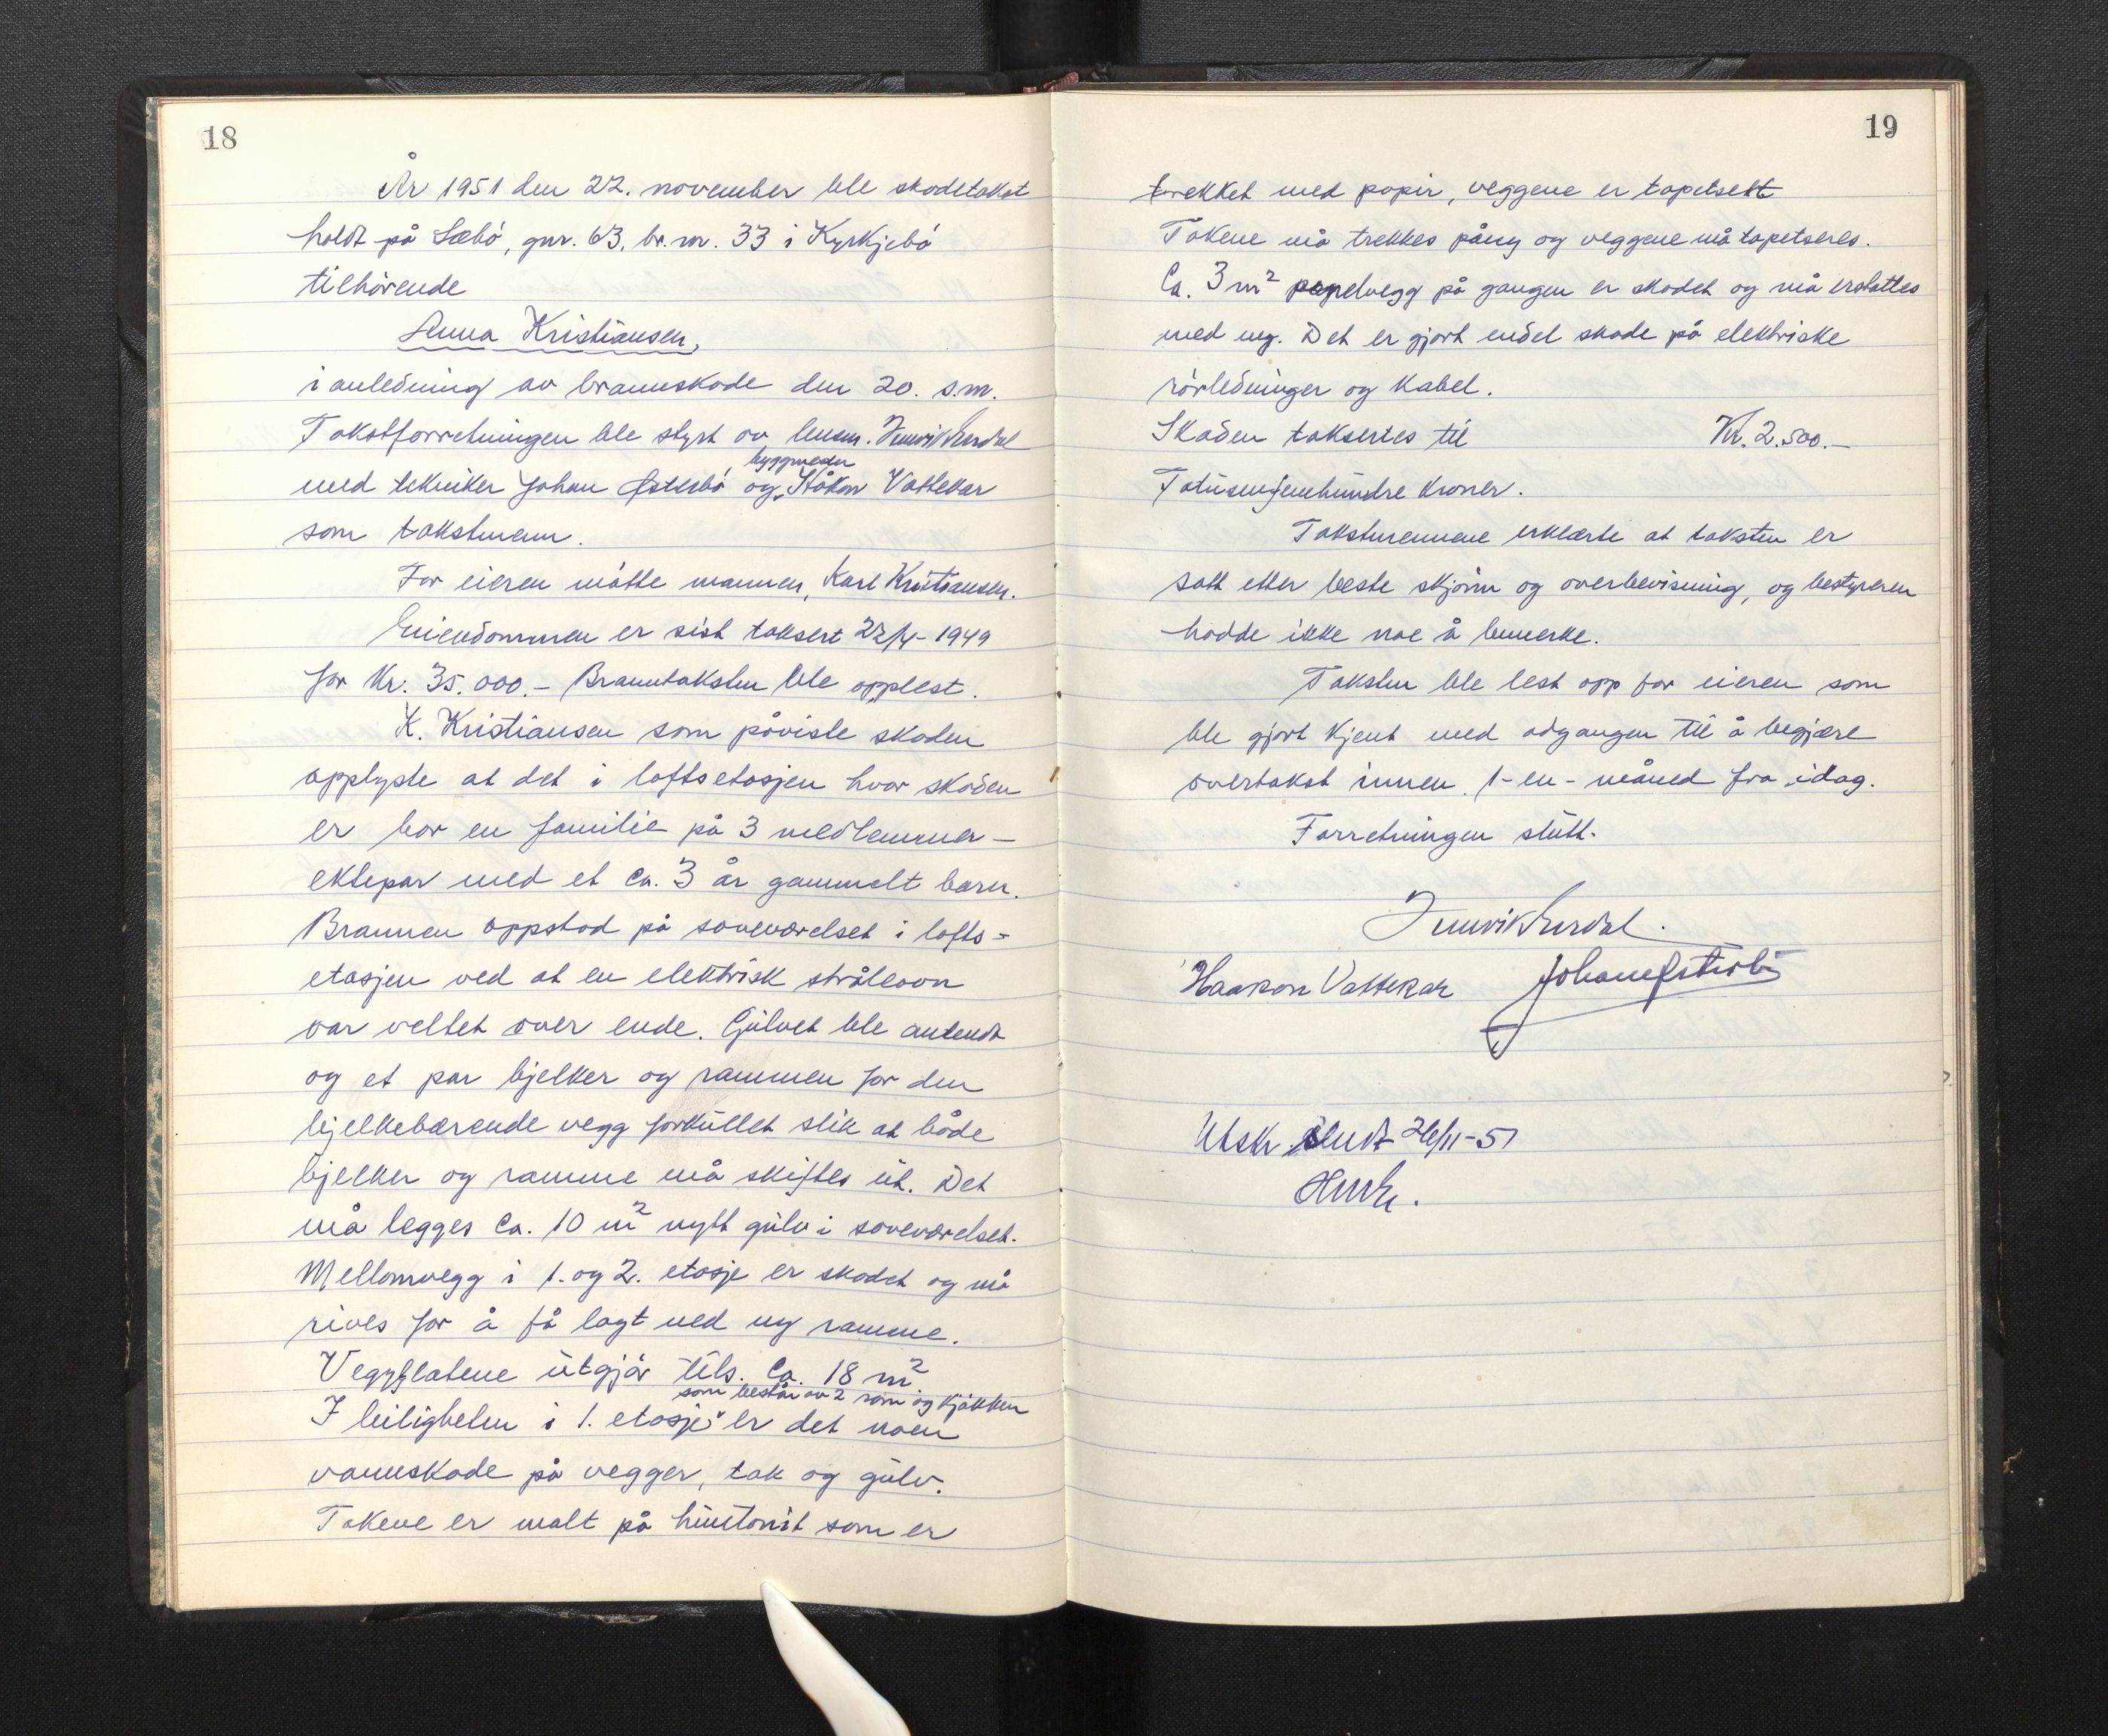 18
År 1951 den 22. november ble skadetakst
holdt på Sæbö, gnr. 63, br.nr. 33 i Kyrkjebö
tilhörende
Anna Kristiansen,
i anledning av brannskade den 20. s.m.
Takstforretningen ble styrt av lensm.
byggmester
med tekniker Johan Østerbö og Håkon Vattekar
som takstmenn.
For eieren mötte mannen, Karl Kristiansen.
Eiendommen er sist taksert 22/4-1949
for Kr. 35.000.- Branntaksten ble opplest.
K. Kristiansen som påviste skaden
opplyste at det i loftsetasjen hvor skaden
er bor en familie på 3 medlemmer -
ektepar med et ca. 3 år gammelt barn.
Brannen oppstod på soveværelset i lofts-
etasjen ved at en elektrisk stråleovn
var veltet over ende. Gulvet ble antendt
og et par bjelker og rammen for den
bjelkebærende vegg forkullet slik at både
bjelker og ramme må skiftes ut. Det
må legges ca. 10 m² nytt gulv i soveværelset.
Mellomvegg i 1. og 2. etasje er skadet og må
rives for å få lagt ned ny ramme.
Veggflatene utgjör tils. ca. 18 m²
som består av 2 rom og kjökken
I leiligheten i 1. etasje er det noen
vannskade på vegger, tak og gulv.
Takene er malt på huntonit som er
19
trekket med papir, veggene er tapetsett
Takene må trekkes påny og veggene må tapetseres.
Ca. 3 m² panelvegg på gangen er skadet og må erstattes
med ny. Det er gjort endel skade på elektriske
rörledninger og kabel.
Skaden takseres til Kr. 2.500.-
Totusenfemhundre kroner.
Takstmennene erklærte at taksten er
satt etter beste skjönn og overbevisning, og bestyreren
hadde ikke noe å bemerke.
Taksten ble lest opp for eieren som
ble gjort kjent med adgangen til å begjære
overtakst innen 1-en-måned fra idag.
Forretningen slutt.
Haakon Vattekar Johan Østerbö
Utsk. sendt 26/11-51